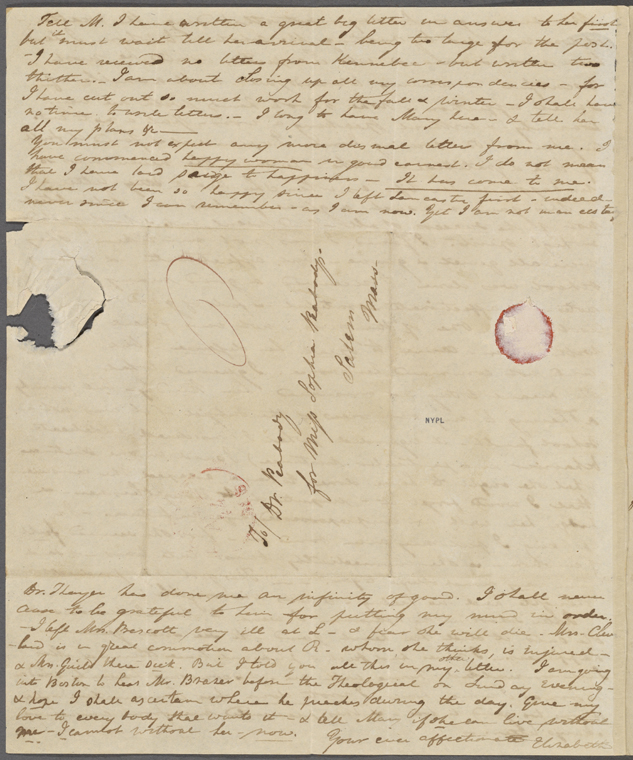 Tell M. I have written a great big letter in answer to her first
but it must wait till her arrival – being too large for the post.
– I have received no letters from Kennebec – but written two
thither. – I am about closing up all my correspondences – for
I have cut out so much work for the fall & winter – I shall have
no time to write letters. – I long to have Mary here – & tell her
all my plans &c —
You must not expect any more dismal letters from me. I
have commenced happy woman in good earnest. I do not mean
that I have laid siege to happiness – It has come to me.
I have not been so happy since I left Lancaster first – indeed –
never since I can remember – as I am now. Yet I am not in an
To/ Dr. Peabody
for Miss Sophia Peabody.
Salem
Mass.
NYPL
Dr. Thayer has done me an infinity of good. I shall never
cease to be grateful to him for putting my mind in order.
– I left Mrs. Prescott very ill at L – & fear she will die – Mrs. Cleve
land is in great commotion about R. whom she thinks, is injured –
& Mrs. Guild there sick. But I told you all this in my letter. I am going
into Boston to hear Mr. Brazer before the Theological on Sunday evening –
& hope I shall ascertain where he preaches during the day. Give my
love to every body that wants it – & tell Mary if she can live without
me – I cannot without her – now.
Your ever affectionate Elizabeth